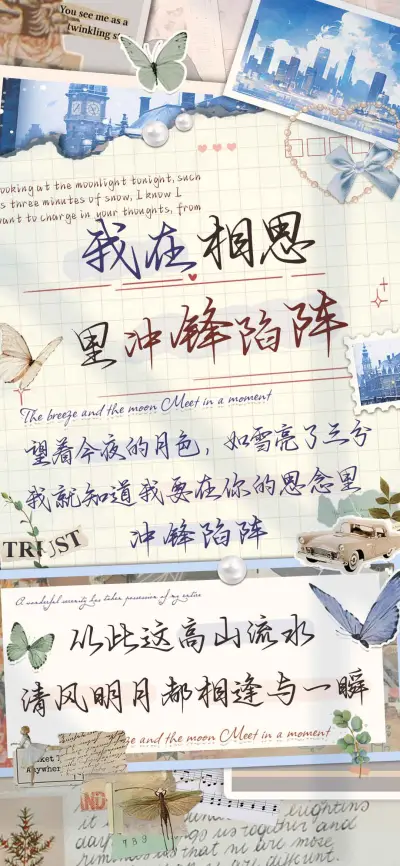 You see me as a
twinkling s
ooking at the moonlight tonight, such
s three minutes of snow, I know I
ant to charge in your thoughts, from
我在相思
里冲锋陷阵
The breeze and the moon Meet in a moment
望着今夜的月色，如雪亮了三分
我就知道我要在你的思念里
冲锋陷阵
TRUST
A wonderful serenity has taken possession of my entire
以此这高山流水
清风明月都相逢与一瞬
eze and the moon Meet in a moment
ket
Anywhere
IND
739
it
day
us together and
reminds us that no are more